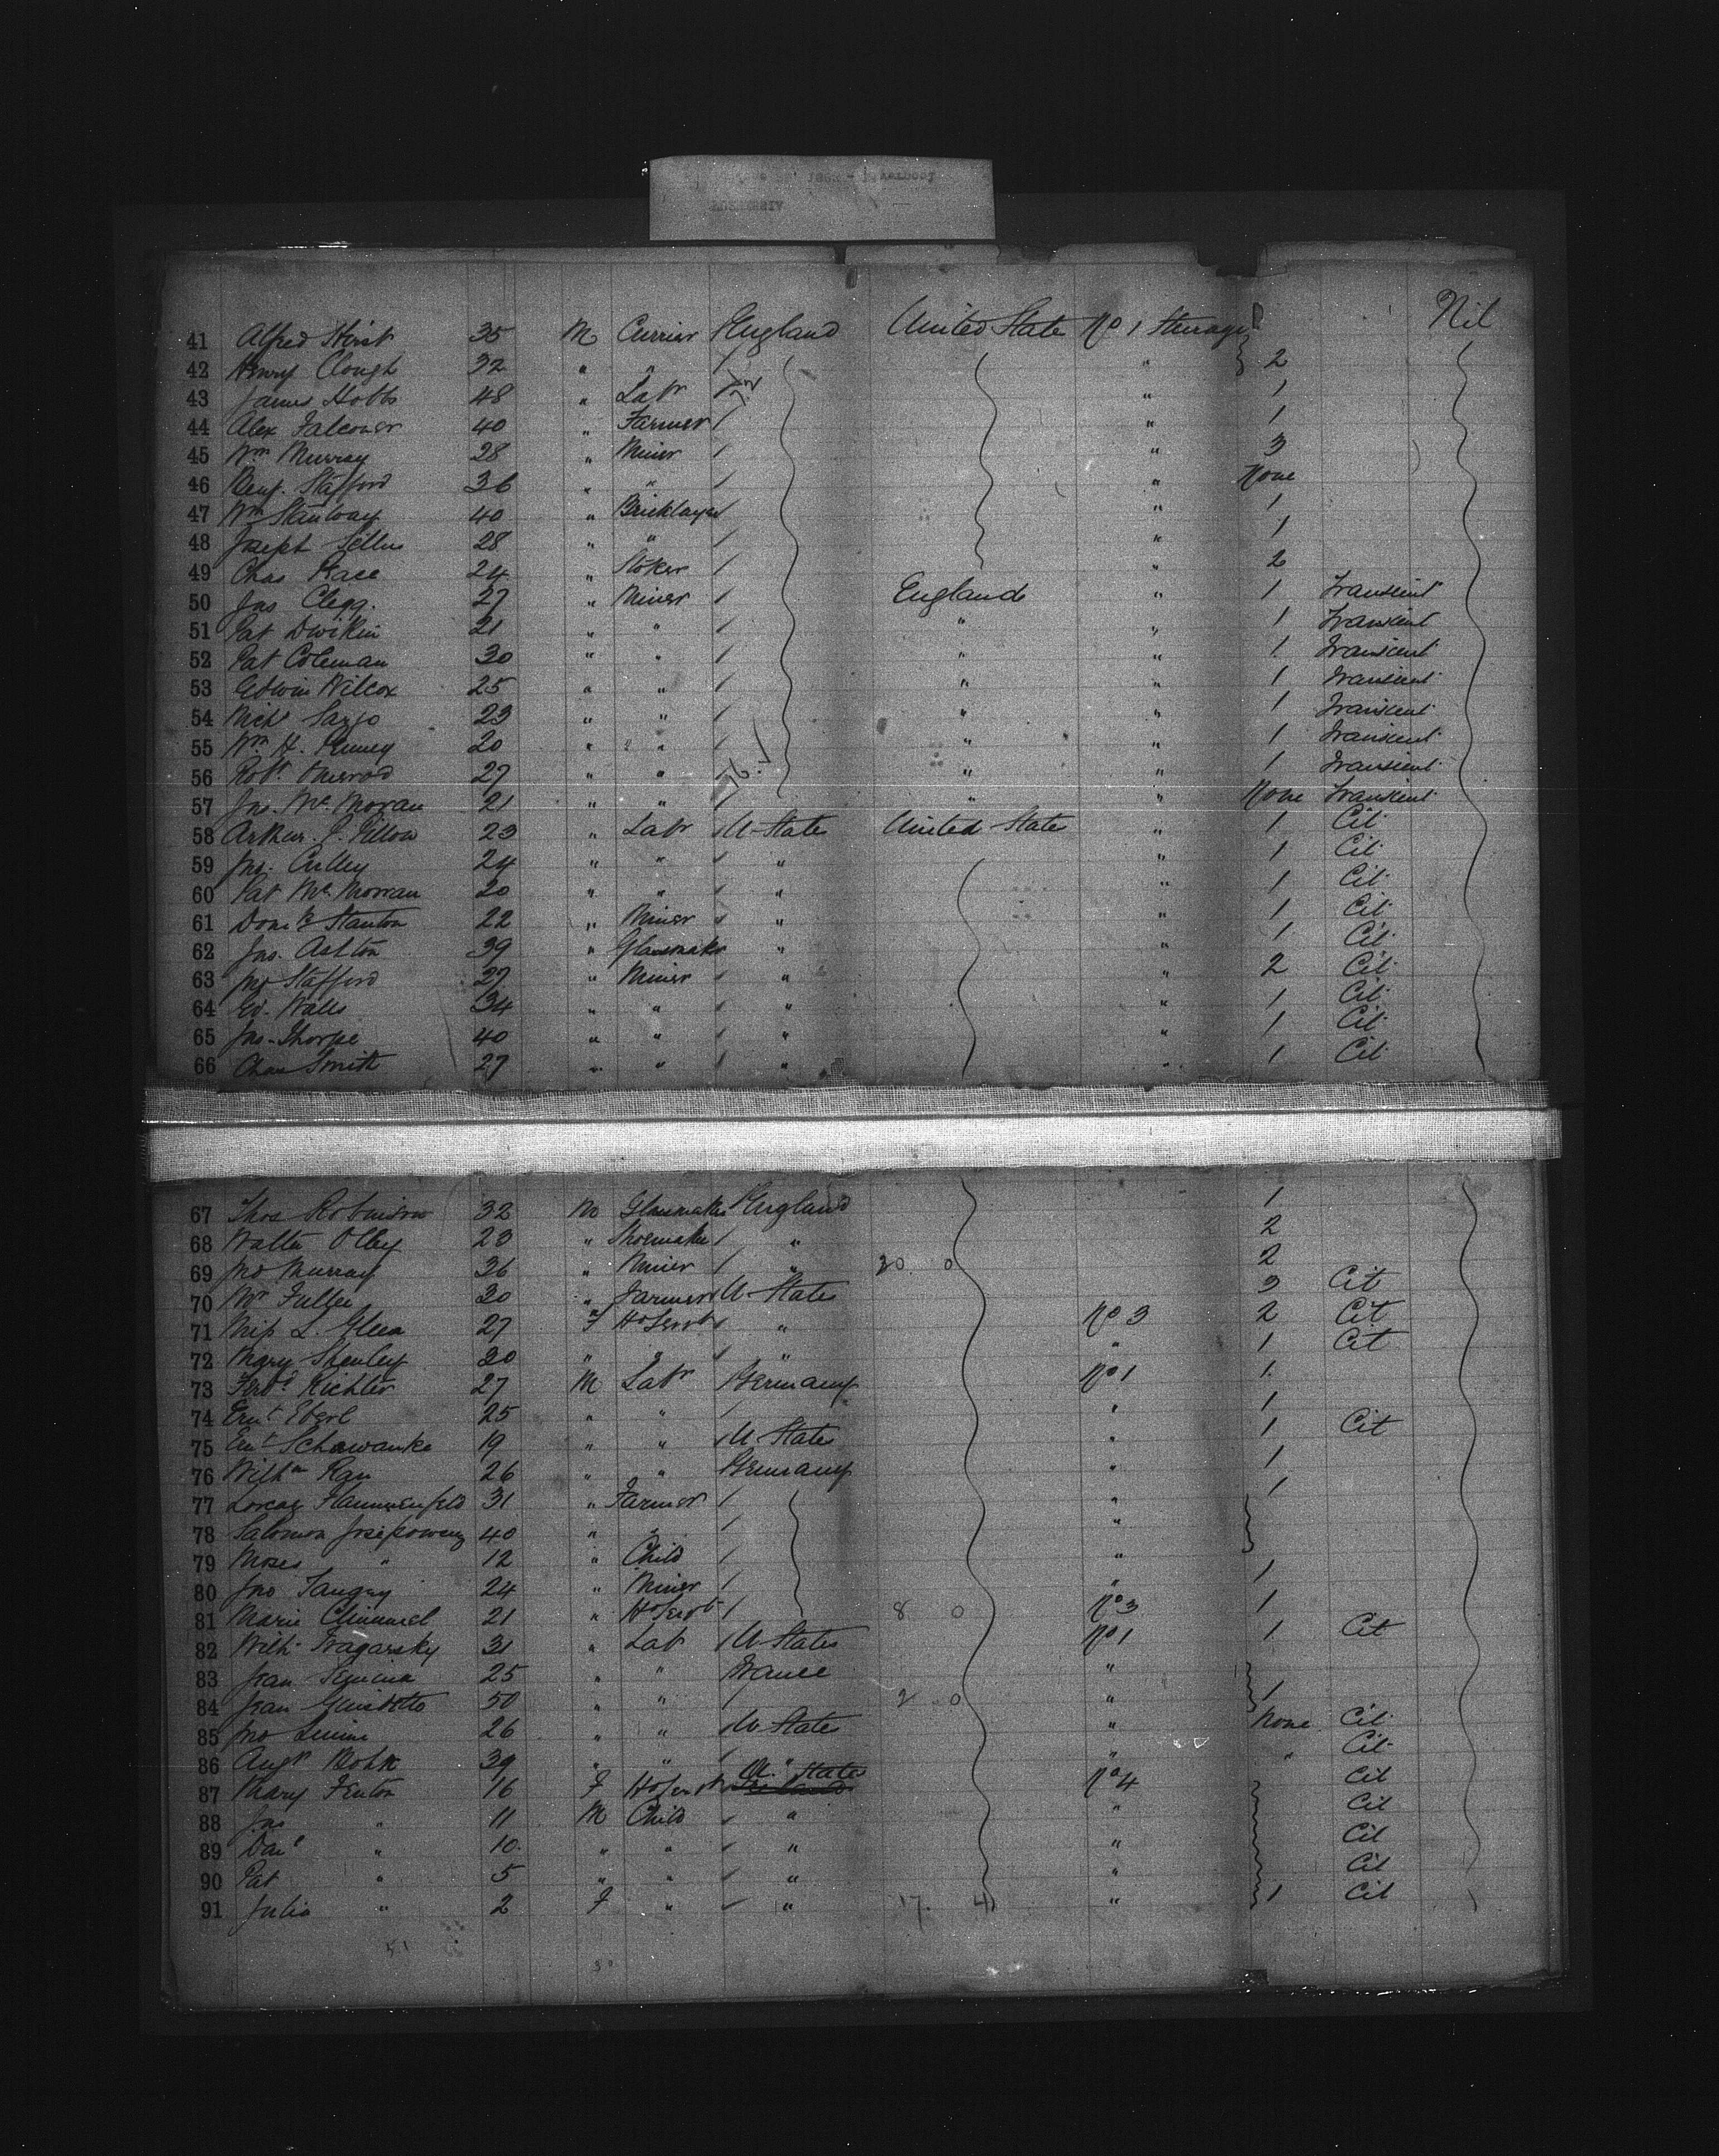 Nil
41 Alfred Hirst 35 M Currier England United State No 1 Steerage
42 Henry Clough 32 " " " 2
43 James Hobbs 48 " Labr " 1
44 Alex Falconer 40 " Farmer " 1
45 Wm Murray 28 " Miner " 3
46 Benj. Stafford 36 " " " None
47 Wm Stanway 40 " Bricklayer " 1
48 Joseph 28 " " " 1
49 Chas Race 24 " Stoker " 2
50 Jno Clegg. 27 " Miner England " 1 Transient
51 Pat Dwikin 21 " " " " 1 Transient
52 Pat Coleman 30 " " " " 1 Transient
53 Edwin Wilcox 25 " " " " 1 Transient
54 23 " " " " 1 Transient
55 Wm H. Penney 20 " " " " 1 Transient
56 Robt Omerod 27 " " " " 1 Transient
57 Jno. Mc Moran 21 " " " " None Transient
58 Arthur J. Pillow 23 " Labr U-State United State " 1 Cit
59 Jno. Culley 24 " " " " 1 Cit
60 Pat Mc Morran 20 " " " " 1 Cit
61 Domk Stanton 22 " Miner " " 1 Cit
62 Jno. Ashton 39 " Glassmakr " " 1 Cit
63 Jno Stafford 27 " Miner " " 2 Cit
64 Ed. Walls 34 " " " " 1 Cit
65 Jno. Thorpe 40 " " " " 1 Cit
66 Chas Smith 27 " " " " 1 Cit
67 Thos Robinson 32 M Glassmakr England 1
68 Walter Olley 23 " Shoemaker " 2
69 Jno Murray 36 " Miner " 2
70 Mr Fuller 30 " Farmer U-States 3 Cit
71 Miss L. Glenn 27 F Ho Servt " No 3 2 Cit
72 Mary Shenley 20 " " " " 1 Cit
73 Ferdd Richter 27 M Labr Germany No 1 1
74 Ernt Eberl 25 " " " 1
75 Ernt Schawanke 19 " " U-State " 1 Cit
76 Wilhm Rau 26 " " Germany " 1
77 31 " Farmer " 1
78 Salomon 40 " " "
79 Moses " 12 " Child " 1
80 Jno 24 " Miner " 1
81 Marie 21 " Ho Servt 8 0 No 3 1
82 Wilh. 31 " Labr U-States No 1 1 Cit
83 Jean 25 " " France "
84 Jean 50 " " 2 0 " 1
85 Jno 26 " " U-State " None Cit
86 Augt 39 " " " " Cit
87 Mary Fenton 16 F Ho Servt U. States No 4 Cit
88 Jno " 11 M Child " " Cit
89 Danl " 10 " " " " Cit
90 Pat " 5 " " " " Cit
91 Julia " 2 F " " 17. 4 " 1 Cit